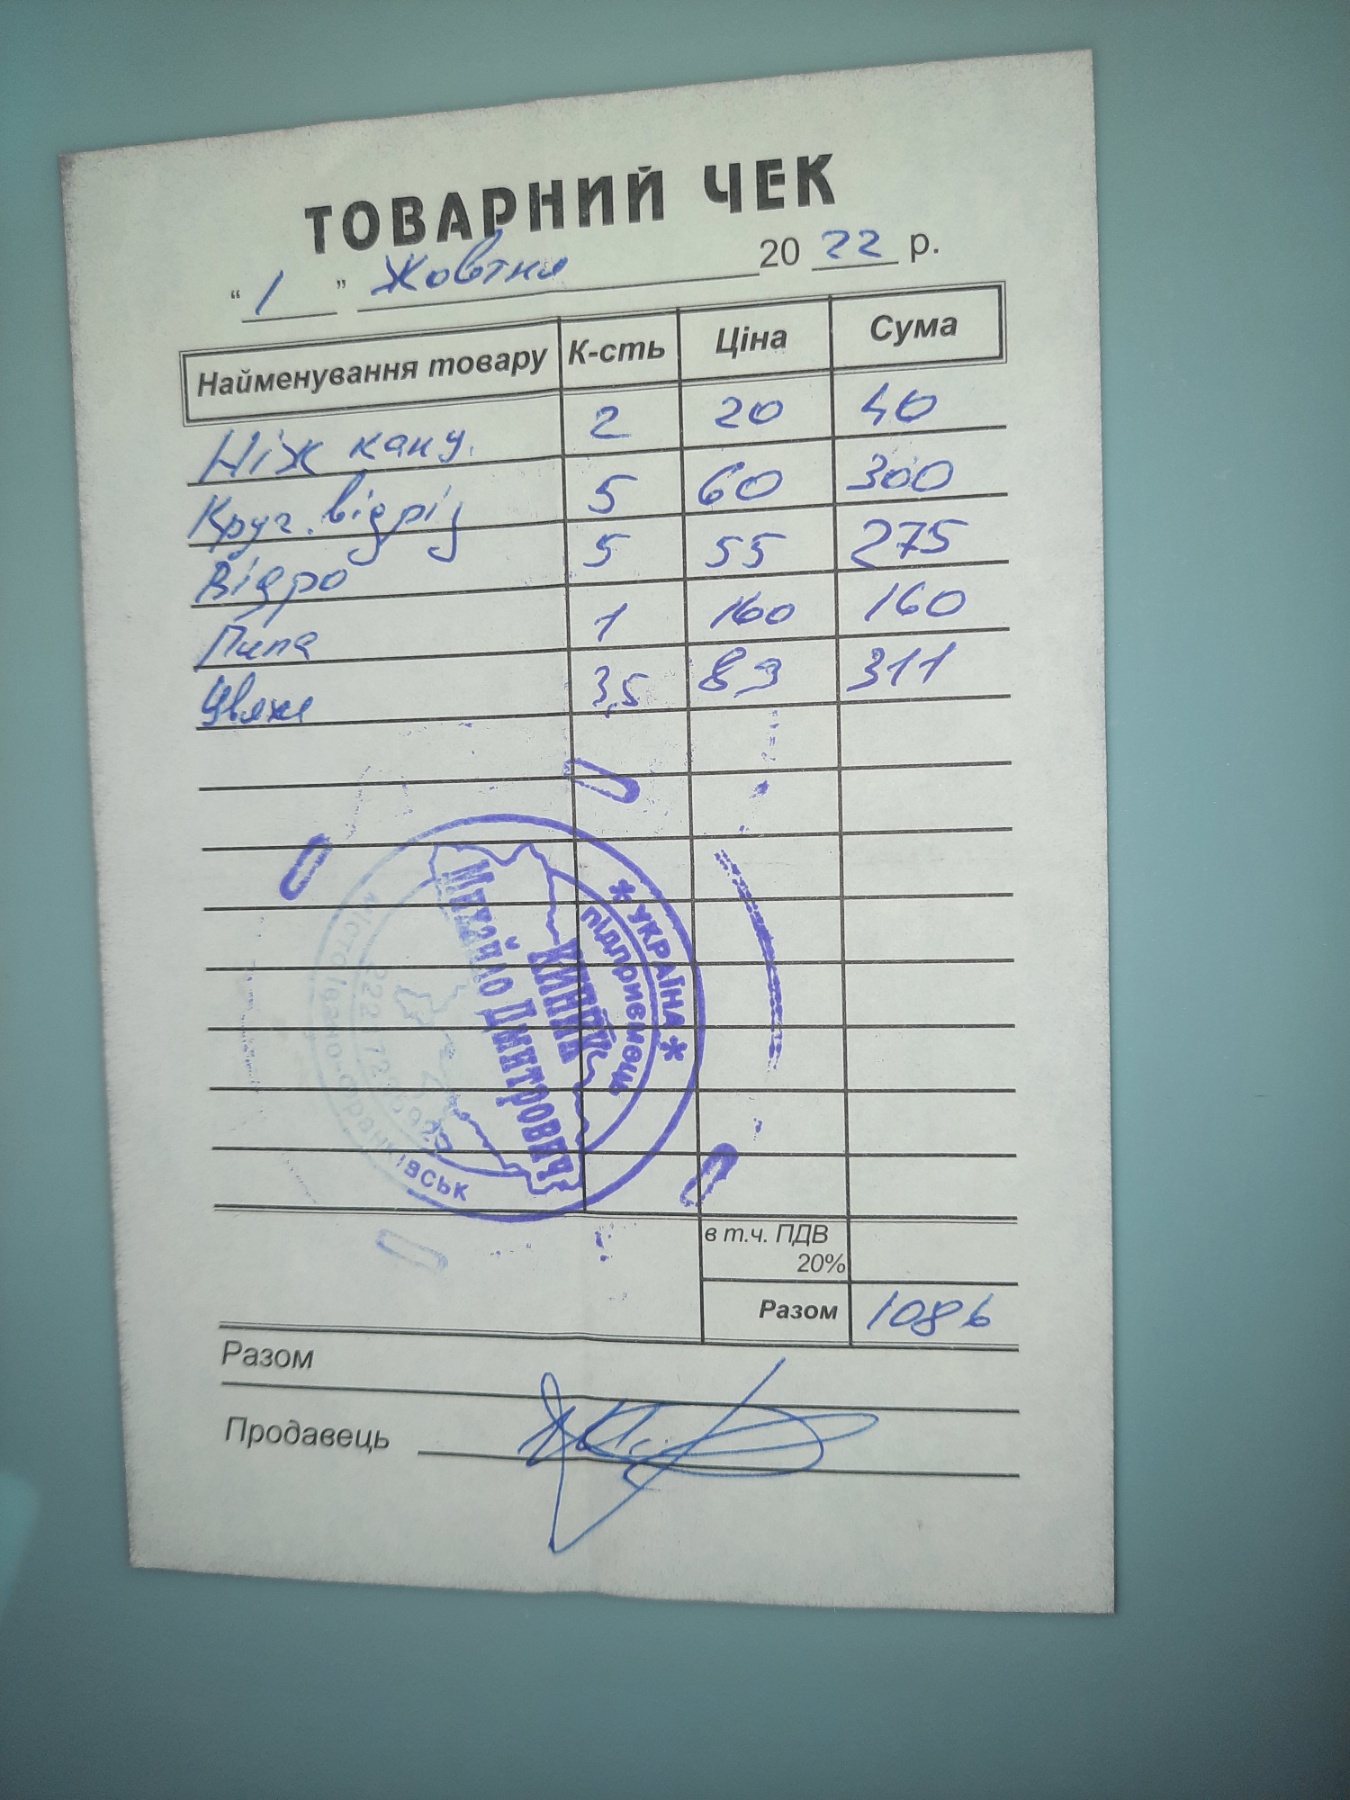 ТОВАРНИЙ ЧЕК
“ 1 ” Жовтня 20 22 р.
Найменування товару К-сть Ціна Сума
Ніж канц. 2 20 40
Круг. відріз 5 60 300
Відро 5 55 275
Пила 1 160 160
Цвяхи 3,5 89 311
* УКРАЇНА *
підприємець
Михайло Дмитрович
місто Івано-Франківськ
в т.ч. ПДВ
20%
Разом 1086
Разом
Продавець